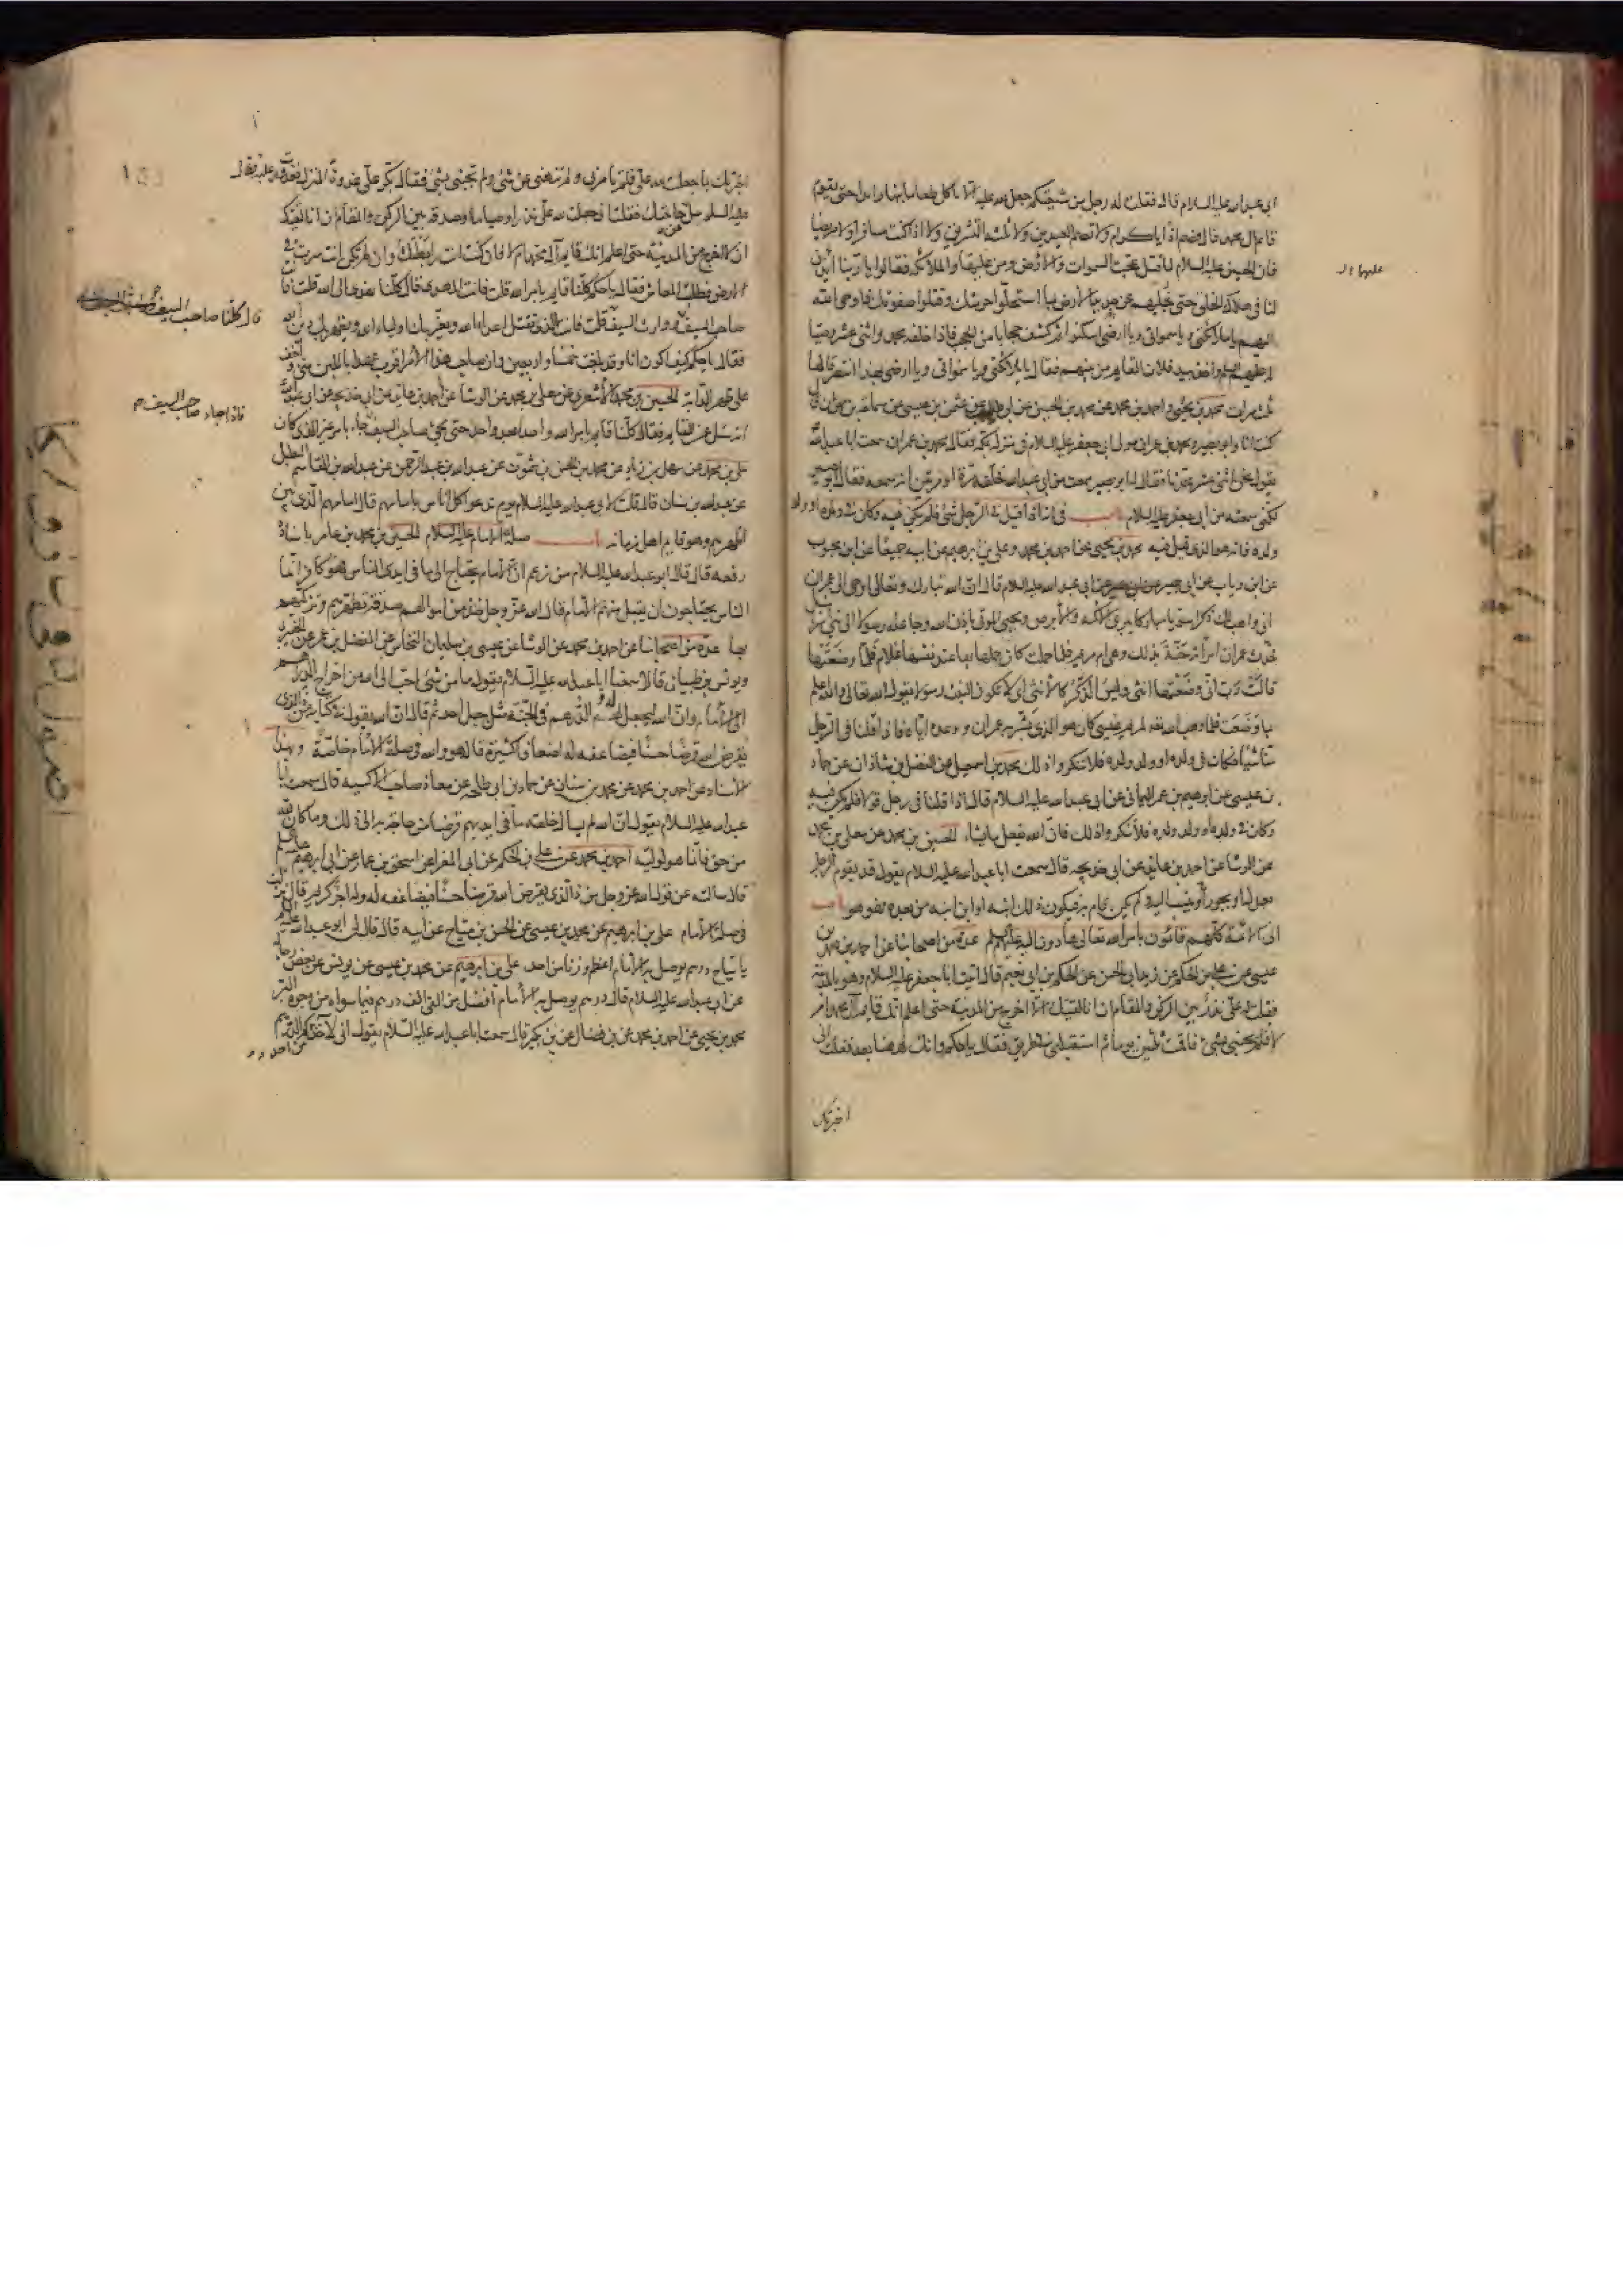 ابى عبد الله عليه السلام قال فقلت له رجل من شيعتكم جعل لله عليه الا ياكل طعاما بنهار ابدا حتى يقوم
قائم آل محمد قال فصم اذا يا كرام ولا تصم العيدين ولا ثلثة التشريق ولا اذا كنت مسافرا ولا مريضا
فان الحسين عليه السلام لما قتل عجت السموات والارض ومن عليهما والملائكة فقالوا يا ربنا ائذن
عليهما
لنا فى هلاك الخلق حتى نجليهم عن جديد الارض بما استحلوا حرمتك وقتلوا صفوتك فاوحى الله
اليهم يا ملائكتى ويا سمواتى ويا ارضى اسكنوا ثم كشف حجابا من الحجب فاذا خلفه محمد واثنى عشر وصيا
فلان القائم من بينهم فقال يا ملائكتى ويا سمواتى ويا ارضى بهذا انتصر قالها
ثلث مرات محمد بن يحيى واحمد بن محمد عن محمد بن الحسين عن ابى طالب عن عثمن بن عيسى عن سماعة بن مهران قال
كنت انا وابو بصير ومحمد بن عمران مولى ابى جعفر عليه السلام فى منزله بمكة فقال محمد بن عمران سمعت ابا عبد الله
يقول نحن اثنى عشر محدثا فقال له ابو بصير سمعت من ابى عبد الله فحلفه مرة او مرتين انه سمعه فقال ابو بصير
لكنى سمعته من ابى جعفر عليه السلام باب فى انه اذا قيل فى الرجل شئ فلم يكن فيه وكان فى ولده او ولد
ولده فانه هو الذى قيل فيه محمد بن يحيى عن احمد بن محمد وعلى بن ابرهيم عن ابيه جميعا عن ابن محبوب
عن ابن رياب عن ابى بصير عن ابى عبد الله عليه السلام قال ان الله تبارك وتعالى اوحى الى عمران
انى واهب لك ذكرا سويا مباركا يبرئ الاكمه والابرص ويحيى الموتى باذن الله وجاعله رسولا الى بنى اسرائيل
فحدث عمران امراته حنة بذلك وهى ام مريم فلما حملت كان حملها بها عند نفسها غلام فلما وضعتها
قالت رب انى وضعتها انثى وليس الذكر كالانثى اى لا تكون البنت رسولا يقول الله تعالى والله اعلم
بما وضعت فلما وهب الله تعالى لمريم عيسى كان هو الذى بشر به عمران ووعده اياه فاذا قلنا فى الرجل
منا شيئا فكان فى ولده او ولد ولده فلا تنكروا ذلك محمد بن اسمعيل عن الفضل بن شاذان عن حماد
بن عيسى عن ابرهيم بن عمر اليمانى عن ابى عبد الله عليه السلام قال اذا قلنا فى رجل قولا فلم يكن فيه
وكان فى ولده او ولد ولده فلا تنكروا ذلك فان الله يفعل ما يشاء الحسين بن محمد عن معلى بن محمد
عن الوشا عن احمد بن عائذ عن ابى خديجة قال سمعت ابا عبد الله عليه السلام يقول قد يقوم الرجل
بعدل او بجور وينسب اليه ولم يكن قام به فيكون ذلك ابنه او ابن ابنه من بعده فهو هو باب
ان الائمة كلهم قائمون بامر الله تعالى هادون اليه عليهم السلم عدة من اصحابنا عن احمد بن محمد بن
عيسى عن على بن الحكم عن زيد ابى الحسن عن الحكم بن ابى نعيم قال اتيت ابا جعفر عليه السلام وهو بالمدينة
فقلت له على نذر بين الركن والمقام ان انا لقيتك الا اخرج من المدينة حتى اعلم انك قائم آل محمد ام
لا فلم يجبنى بشئ فاقمت ثلثين يوما ثم استقبلنى فى طريق فقال يا حكم وانك لههنا بعد فقلت انى
اخبرتك
اخبرتك بما جعلت لله على فلم تامرنى ولم تنهنى عن شئ ولم تجبنى بشئ فقال بكر على غدوة المنزل فغدوت عليه فقال
عليه السلام سل حاجتك فقلت انى جعلت لله على نذرا وصياما وصدقة بين الركن والمقام ان انا لقيتك
ان لا اخرج من المدينة حتى اعلم انك قائم آل محمد ام لا فان كنت انت رابطتك وان لم تكن انت سرت فى
الارض فطلبت المعاش فقال يا حكم كلنا قائم بامر الله قلت فانت المهدى قال كلنا نهدى الى الله قلت فانت
صاحب السيف ووارث السيف قلت فانت الذى تقتل اعداء الله ويعز بك اولياء الله ويظهر بك دين الله
قال كلنا صاحب السيف
فقال يا حكم كيف اكون انا وقد بلغت خمسا واربعين وان صاحب هذا الامر اقرب عهدا باللبن منى واخف
على ظهر الدابة الحسين بن محمد الاشعرى عن معلى بن محمد عن الوشا عن احمد بن عائذ عن ابى خديجة عن ابى عبد الله
انه سئل عن القائم فقال كلنا قائم بامر الله واحد بعد واحد حتى يجئ صاحب السيف جاء بامر غير الذى كان
فاذا جاء صاحب السيف
على بن محمد عن سهل بن زياد عن محمد بن الحسن بن شمون عن عبد الله بن عبد الرحمن عن عبد الله بن القاسم البطل
عن عبد الله بن سنان قال قلت لابى عبد الله عليه السلام يوم ندعو كل اناس بامامهم قال امامهم الذى بين
اظهرهم وهو قائم اهل زمانه باب صلة الامام عليه السلام الحسين بن محمد بن عامر باسناده
رفعه قال قال ابو عبد الله عليه السلام من زعم ان الامام يحتاج الى ما فى ايدى الناس فهو كافر انما
الناس يحتاجون ان يقبل منهم الامام قال الله عز وجل خذ من اموالهم صدقة تطهرهم وتزكيهم
بها عدة من اصحابنا عن احمد بن محمد عن الوشا عن عيسى بن سليمان النحاس عن المفضل بن عمر عن الخيبرى
ويونس بن ظبيان قالا سمعنا ابا عبد الله عليه السلام يقول ما من شئ احب الى الله من اخراج الدراهم
الى الامام وان الله ليجعل له الدرهم فى الجنة مثل جبل احد ثم قال ان الله يقول فى كتابه من ذا الذى
يقرض الله قرضا حسنا فيضاعفه له اضعافا كثيرة قال هو والله فى صلة الامام خاصة وبهذا
الاسناد عن احمد بن محمد عن محمد بن سنان عن حماد بن ابى طلحة عن معاذ صاحب الاكسية قال سمعت ابا
عبد الله عليه السلام يقول ان الله لم يسال خلقه ما فى ايديهم قرضا من حاجة به الى ذلك وما كان لله
من حق فانما هو لوليه احمد بن محمد عن على بن الحكم عن ابى المغرا عن اسحق بن عمار عن ابى ابرهيم عليه السلم
قال سالته عن قول الله عز وجل من ذا الذى يقرض الله قرضا حسنا فيضاعفه له وله اجر كريم قال نزلت
فى صلة الامام على بن ابرهيم عن محمد بن عيسى عن الحسن بن مياح عن ابيه قال قال لى ابو عبد الله عليه السلم
يا مياح درهم يوصل به الامام اعظم وزنا من احد على بن ابرهيم عن محمد بن عيسى عن يونس عن بعض رجاله
عن ابى عبد الله عليه السلام قال درهم يوصل به الامام افضل من الفى الف درهم فيما سواه من وجوه البر
محمد بن يحيى عن احمد بن محمد عن بن فضال عن بن بكير قال سمعت ابا عبد الله عليه السلام يقول انى لآخذ الدرهم
من احدكم